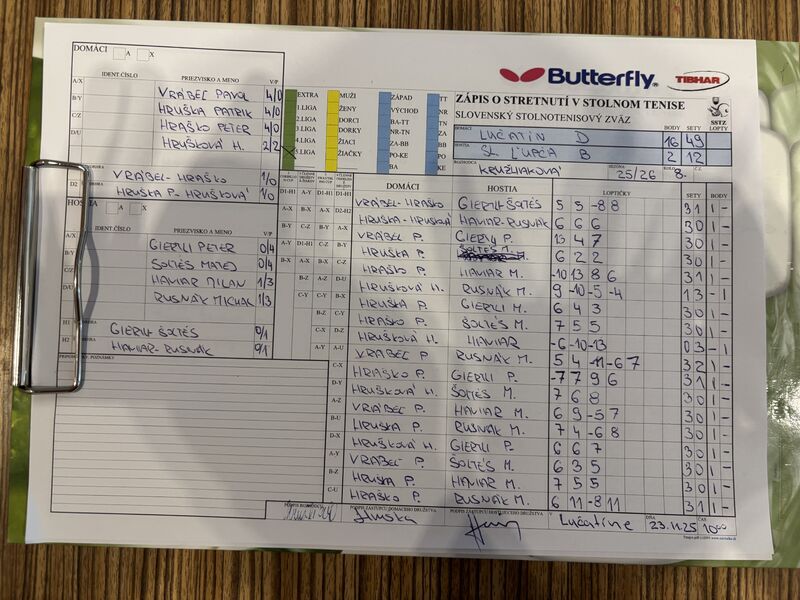 DOMÁCI A X
IDENT. ČÍSLO PRIEZVISKO A MENO V/P
A/X VRÁBEĽ PAVOL 4/0
B/Y HRUŠKA PATRIK 4/0
C/Z HRAŠKO PETER 4/0
D/U HRUŠKOVÁ H. 2/2
VRÁBEĽ - HRAŠKO 1/0
D2 HRUŠKA P - HRUŠKOVÁ 1/0
HOSTIA A X
IDENT. ČÍSLO PRIEZVISKO A MENO V/P
A/X GIERTLI PETER 0/4
B/Y ŠOLTÉS MATEJ 0/4
C/Z HAVIAR MILAN 1/3
D/U RUSNÁK MICHAL 1/3
H1 GIERTLI - ŠOLTÉS 0/1
H2 HAVIAR - RUSNÁK 0/1
PRIPOMIENKY, POZNÁMKY
EXTRA MUŽI ZÁPAD TT
1.LIGA ŽENY VÝCHOD NR
2.LIGA DORCI BA-TT
3.LIGA DORKY NR-TN ZA
4.LIGA ŽIACI ZA-BB BB
5.LIGA ŽIAČKY PO-KE PO
BA KE
Butterfly TIBHAR
ZÁPIS O STRETNUTÍ V STOLNOM TENISE
SLOVENSKÝ STOLNOTENISOVÝ ZVÄZ
SSTZ
DOMÁCI LUČATÍN D BODY 16 SETY 49 LOPTY
HOSTIA SL. ĽUPČA B 2 12
ROZHODCA KRUŽLIAKOVÁ SEZÓNA 25/26 KOLO 8.
DOMÁCI HOSTIA LOPTIČKY SETY BODY
VRÁBEĽ - HRAŠKO GIERTLI - ŠOLTÉS 5 5 -8 8 3 1 1 -
HRUŠKA - HRUŠKOVÁ HAVIAR - RUSNÁK 6 6 6 3 0 1 -
VRÁBEĽ P. GIERTLI P. 13 4 7 3 0 1 -
HRUŠKA P. ŠOLTÉS M. 6 2 2 3 0 1 -
HRAŠKO P. HAVIAR M. -10 13 8 6 3 1 1 -
HRUŠKOVÁ H. RUSNÁK M. 9 -10 -5 -4 1 3 - 1
HRUŠKA P. GIERTLI M. 6 4 3 3 0 1 -
HRAŠKO P. ŠOLTÉS M. 7 5 5 3 0 1 -
HRUŠKOVÁ H. HAVIAR -6 -10 -13 0 3 - 1
VRÁBEĽ P RUSNÁK M. 5 4 -11 -6 7 3 2 1 -
HRAŠKO P. GIERTLI P. -7 7 9 6 3 1 1 -
HRUŠKOVÁ H. ŠOLTÉS M. 7 6 8 3 0 1 -
VRÁBEĽ P. HAVIAR M. 6 9 -5 7 3 1 1 -
HRUŠKA P. RUSNÁK M. 7 4 -6 8 3 1 1 -
HRUŠKOVÁ H. GIERTLI P. 6 6 7 3 0 1 -
VRÁBEĽ P. ŠOLTÉS M. 6 3 5 3 0 1 -
HRUŠKA P. HAVIAR M. 7 5 5 3 0 1 -
HRAŠKO P. RUSNÁK M. 6 11 -8 11 3 1 1 -
PODPIS ROZHODCU PODPIS ZÁSTUPCU DOMÁCEHO DRUŽSTVA PODPIS ZÁSTUPCU HOSŤUJÚCEHO DRUŽSTVA DŇA ČAS
Hruska Lučatíne 23.11.25 10:00